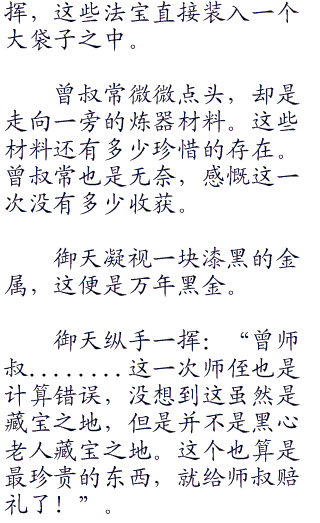 挥，这些法宝直接装入一个
大袋子之中。
曾叔常微微点头，却是
走向一旁的炼器材料。这些
材料还有多少珍惜的存在。
曾叔常也是无奈，感慨这一
次没有多少收获。
御天凝视一块漆黑的金
属，这便是万年黑金。
御天纵手一挥：“曾师
叔........这一次师侄也是
计算错误，没想到这虽然是
藏宝之地，但是并不是黑心
老人藏宝之地。这个也算是
最珍贵的东西，就给师叔赔
礼了！”。